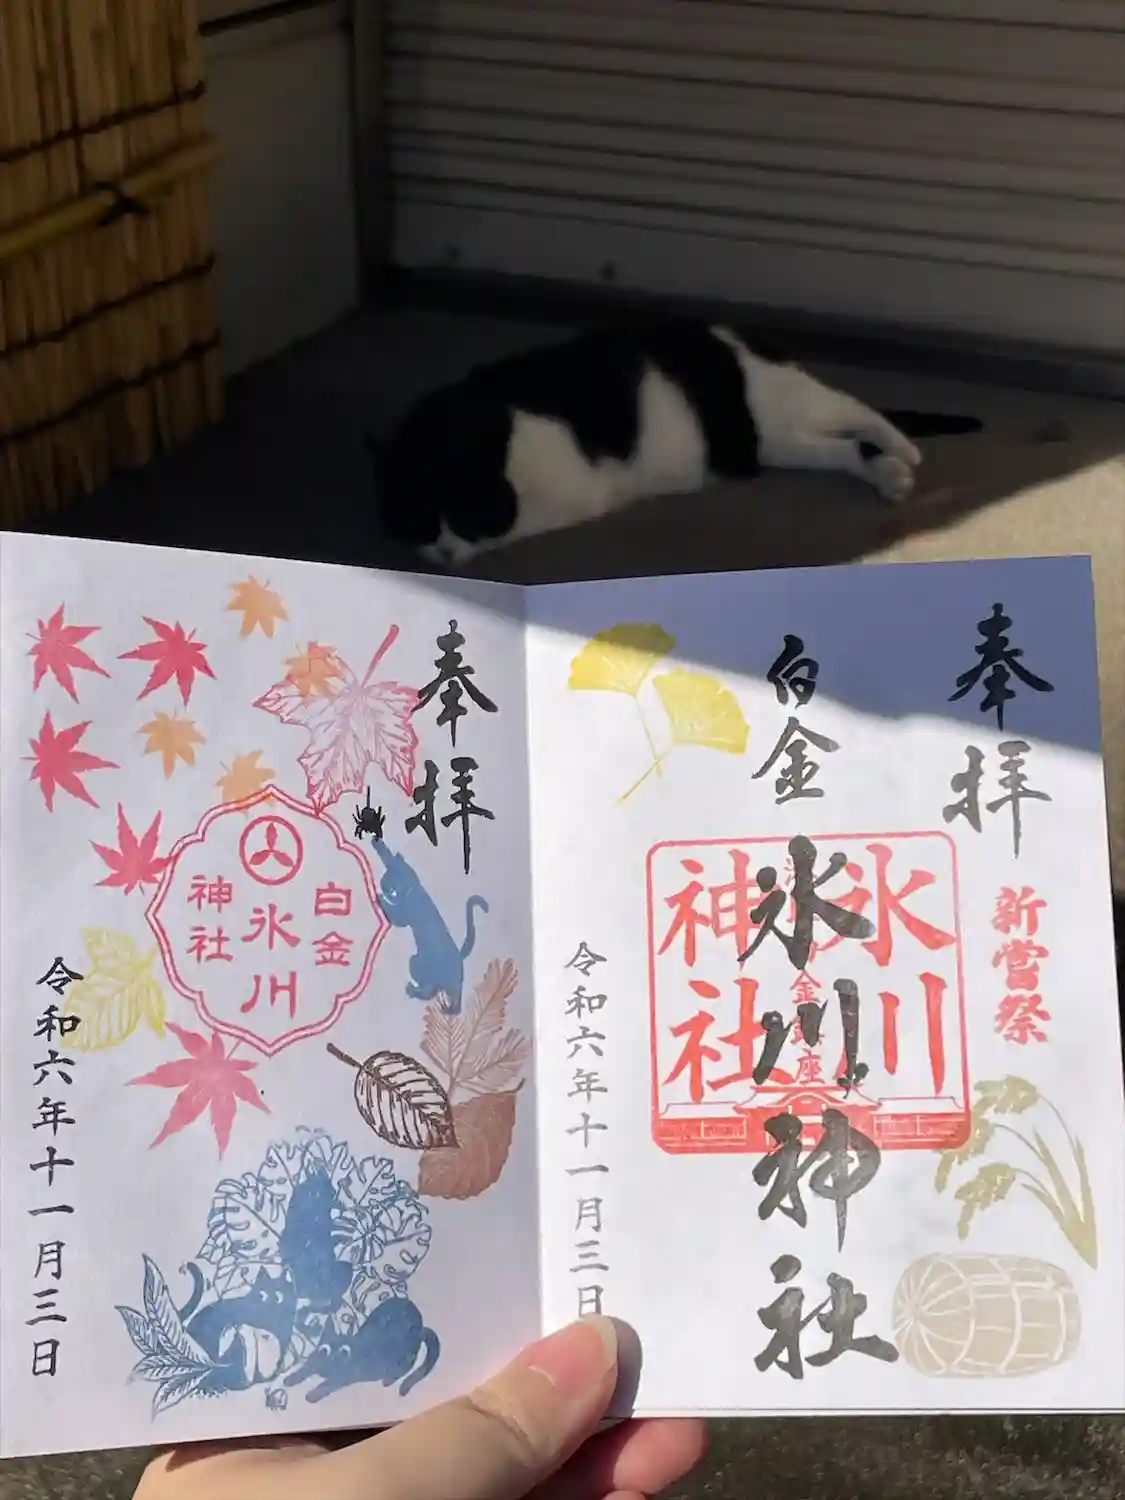 奉拝
新嘗祭
白金氷川神社
氷川
神社
金鎮座
令和六年十一月三日
奉拝
白金
氷川
神社
令和六年十一月三日